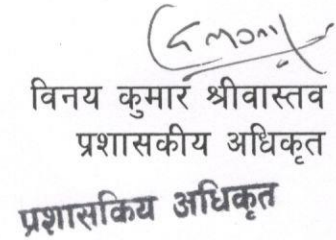 विनय कुमार श्रीवास्तव
प्रशासकीय अधिकृत
प्रशासकिय अधिकृत